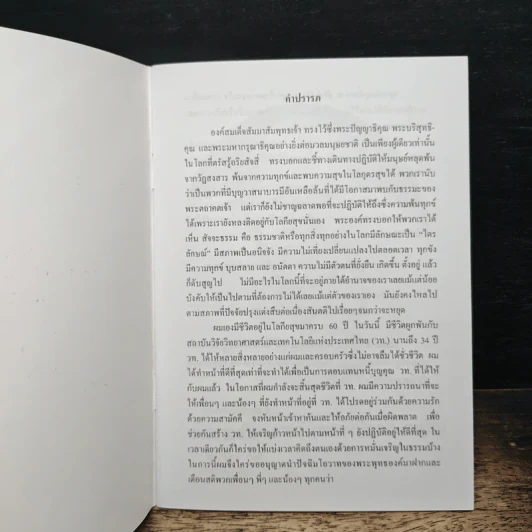 คำปรารภ
องค์สมเด็จสัมมาสัมพุทธเจ้า ทรงไว้ซึ่งพระปัญญาธิคุณ พระบริสุทธิ-
คุณ และพระมหากรุณาธิคุณอย่างยิ่งต่อมวลมนุษยชาติ เป็นเพียงผู้เดียวเท่านั้น
ในโลกที่ตรัสรู้อริยสัจสี่ ทรงบอกและชี้ทางเดินทางปฏิบัติให้มนุษย์หลุดพ้น
จากวัฏสงสาร พ้นจากความทุกข์และพบความสุขในโลกุตรสุขได้ พวกเรานับ
ว่าเป็นพวกที่มีบุญวาสนาบารมีอันเหลือล้นที่ได้มีโอกาสมาพบกับธรรมะของ
พระตถาคตเจ้า แต่เราก็ยังไม่ชาญฉลาดพอที่จะปฏิบัติให้ถึงซึ่งความพ้นทุกข์
ได้เพราะเรายังหลงติดอยู่กับโลกียสุขนั่นเอง พระองค์ทรงบอกให้พวกเราได้
เห็น สัจจะธรรม คือ ธรรมชาติหรือทุกสิ่งทุกอย่างในโลกมีลักษณะเป็น "ไตร
ลักษณ์" มีสภาพเป็นอนิจจัง มีความไม่เที่ยงเปลี่ยนแปลงไปตลอดเวลา ทุกขัง
มีความทุกข์ บุบสลาย และ อนัตตา ความไม่มีตัวตนที่ยั่งยืน เกิดขึ้น ตั้งอยู่ แล้ว
ก็ดับสูญไป ไม่มีอะไรในโลกนี้ที่จะอยู่ภายใต้อำนาจของเราเลยแม้แต่น้อย
บังคับให้เป็นไปตามที่ต้องการไม่ได้เลยแม้แต่ตัวของเราเอง มันยังคงไหลไป
ตามสภาพที่ปัจจัยปรุงแต่งสืบต่อเนื่องสันตติไปเรื่อยๆจนกว่าจะหยุด
ผมเองมีชีวิตอยู่ในโลกียสุขมาครบ 60 ปี ในวันนี้ มีชีวิตผูกพันกับ
สถาบันวิจัยวิทยาศาสตร์และเทคโนโลยีแห่งประเทศไทย (วท.) นานถึง 34 ปี
วท. ได้ให้หลายสิ่งหลายอย่างแก่ผมและครอบครัวซึ่งไม่อาจลืมได้ชั่วชีวิต ผม
ได้ทำหน้าที่ดีที่สุดเท่าที่จะทำได้เพื่อเป็นการตอบแทนหนี้บุญคุณ วท. ที่ได้ให้
กับผมแล้ว ในโอกาสที่ผมกำลังจะสิ้นสุดชีวิตที่ วท. ผมมีความปรารถนาที่จะ
ให้เพื่อนๆ และน้องๆ ที่ยังทำหน้าที่อยู่ที่ วท. ได้โปรดอยู่ร่วมกันด้วยความรัก
ด้วยความสามัคคี จงหันหน้าเข้าหากันและให้อภัยต่อกันเมื่อผิดพลาด เพื่อ
ช่วยกันสร้าง วท. ให้เจริญก้าวหน้าไปตามหน้าที่ ๆ ยังปฏิบัติอยู่ให้ดีที่สุด ใน
เวลาเดียวกันก็ใคร่ขอให้แบ่งเวลาคิดถึงตนเองด้วยการหมั่นเจริญในธรรมบ้าง
ในการนี้ผมจึงใคร่ขออนุญาตนำปัจฉิมโอวาทของพระพุทธองค์มาฝากและ
เตือนสติพวกเพื่อนๆ พี่ๆ และน้องๆ ทุกคนว่า